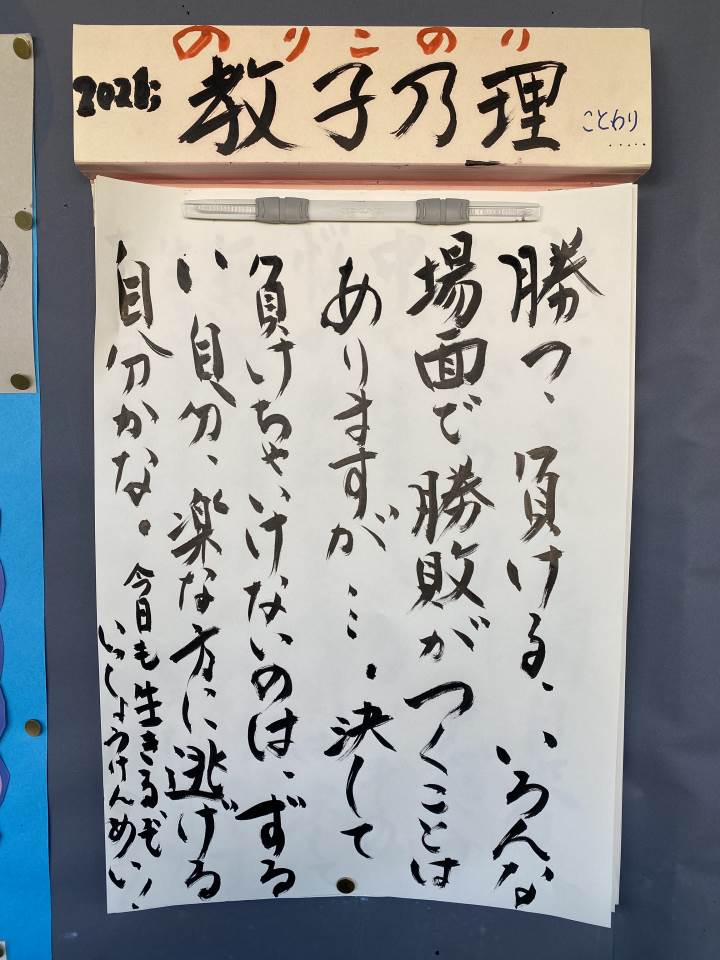 のりこのり
2026;
教子乃理
ことわり
.....
勝つ、負ける、いろんな
場面で勝敗がつくことは
ありますが…。決して
負けちゃいけないのは、ずる
い自分、楽な方に逃げる
自分かな。
今日も生きるぞ
いっしょうけんめい!